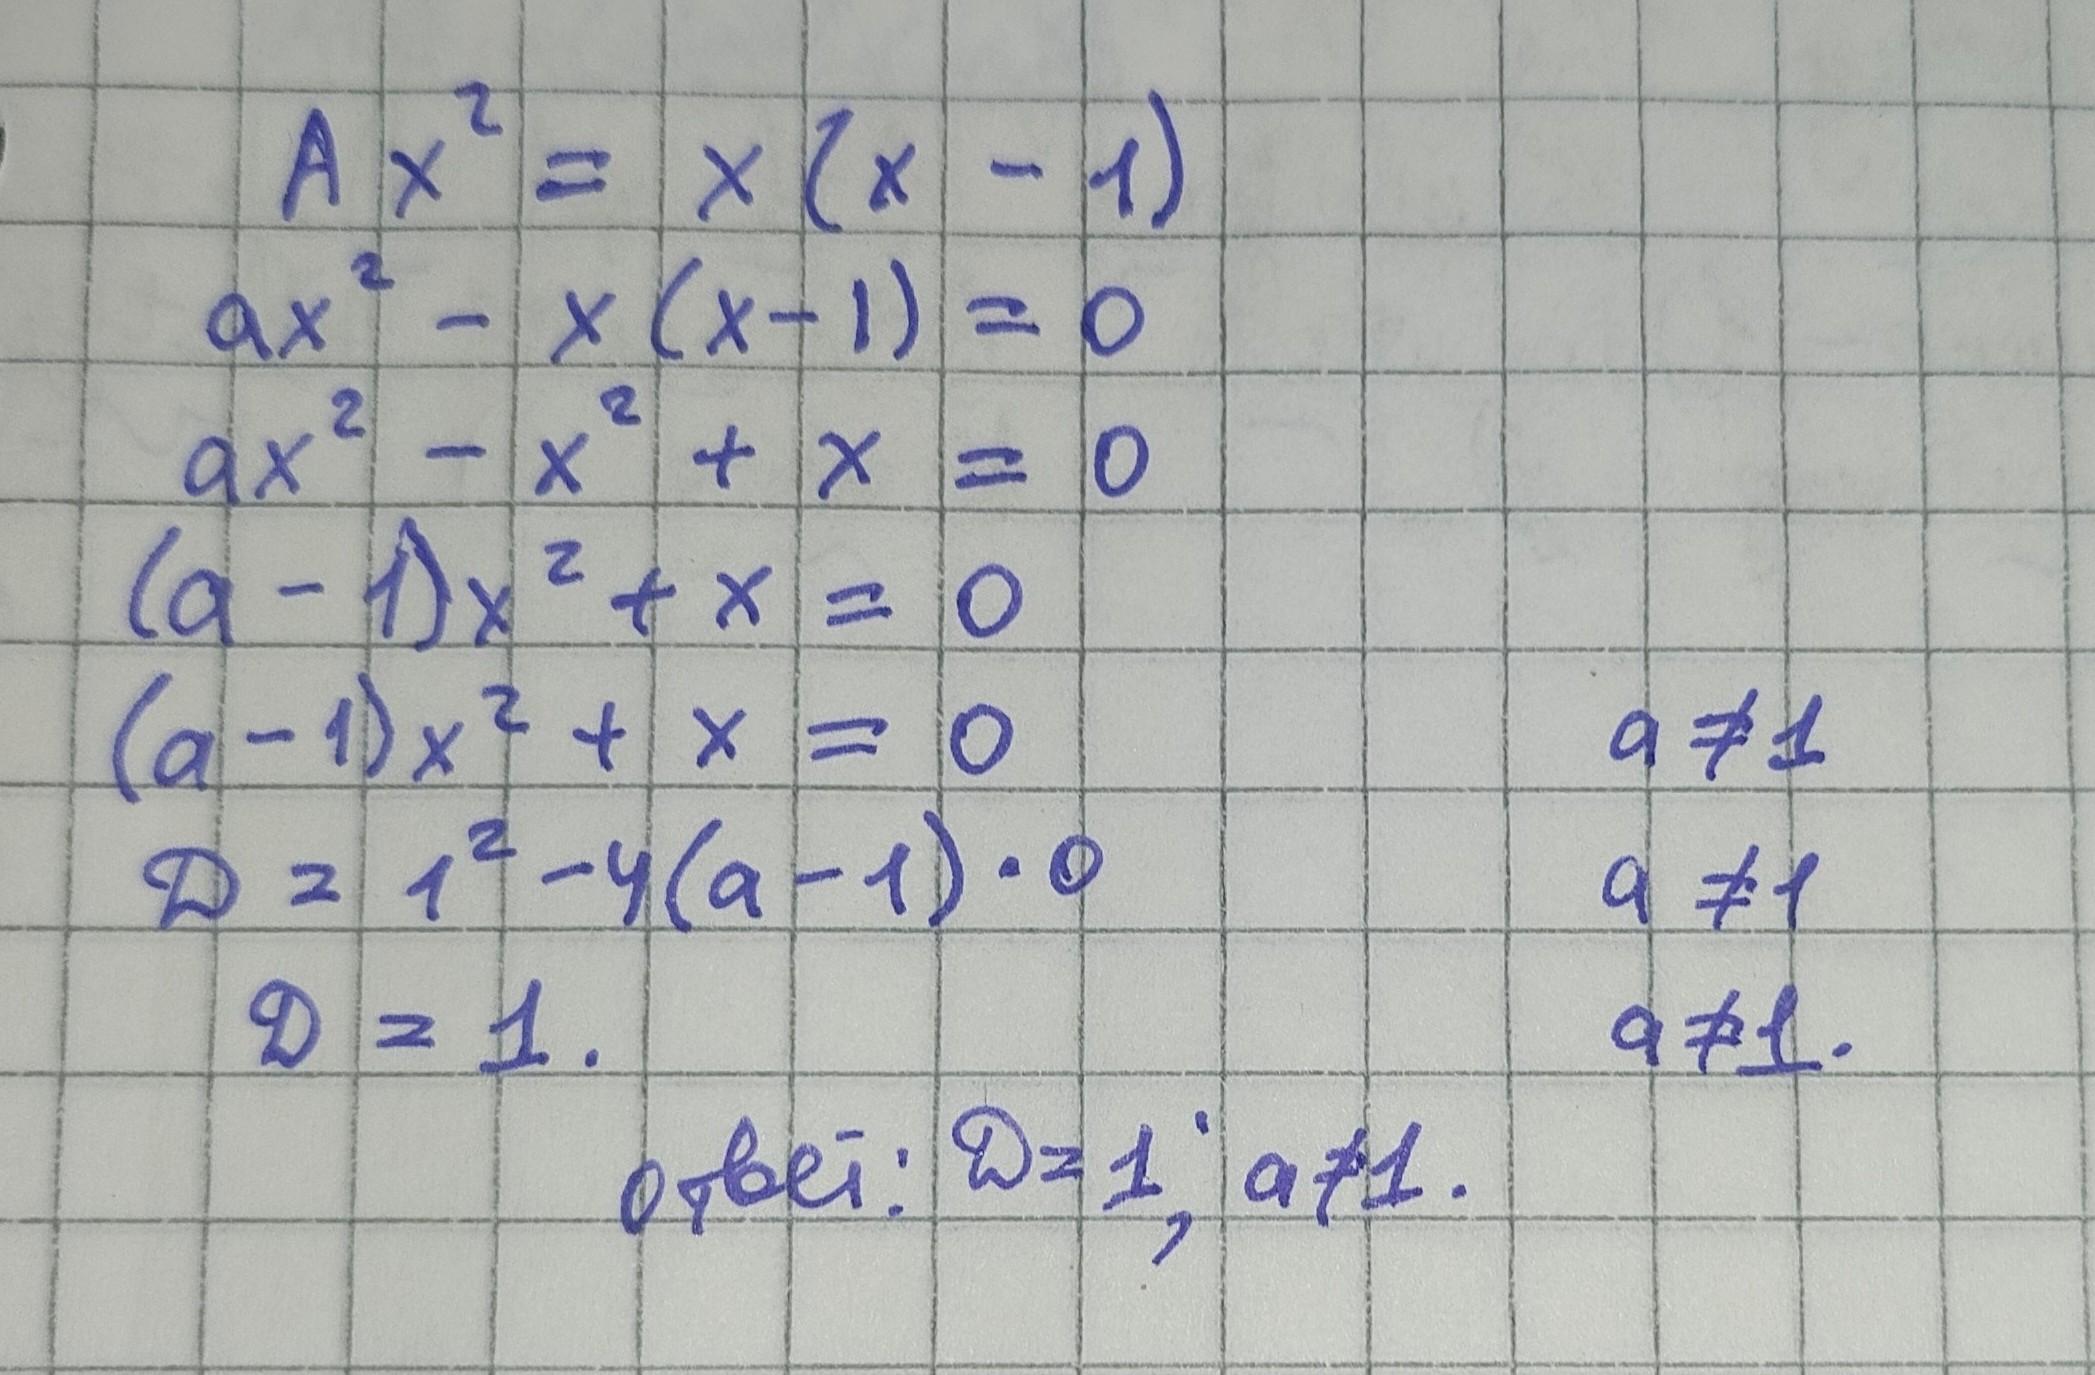 A x² = x (x - 1)
ax² - x (x - 1) = 0
ax² - x² + x = 0
(a - 1)x² + x = 0
(a - 1)x² + x = 0 a ≠ 1
D = 1² - 4(a - 1) · 0 a ≠ 1
D = 1. a ≠ 1.
ответ: D = 1; a ≠ 1.